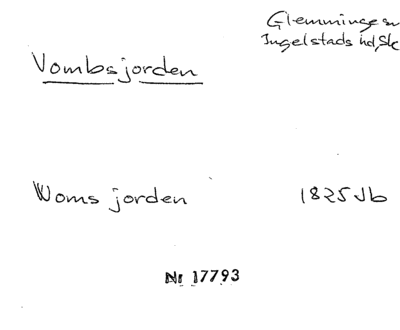 Glemminge sn
Ingelstads hd, Sk
Vombsjorden
Woms jorden 1825 Jb
Nr 17793